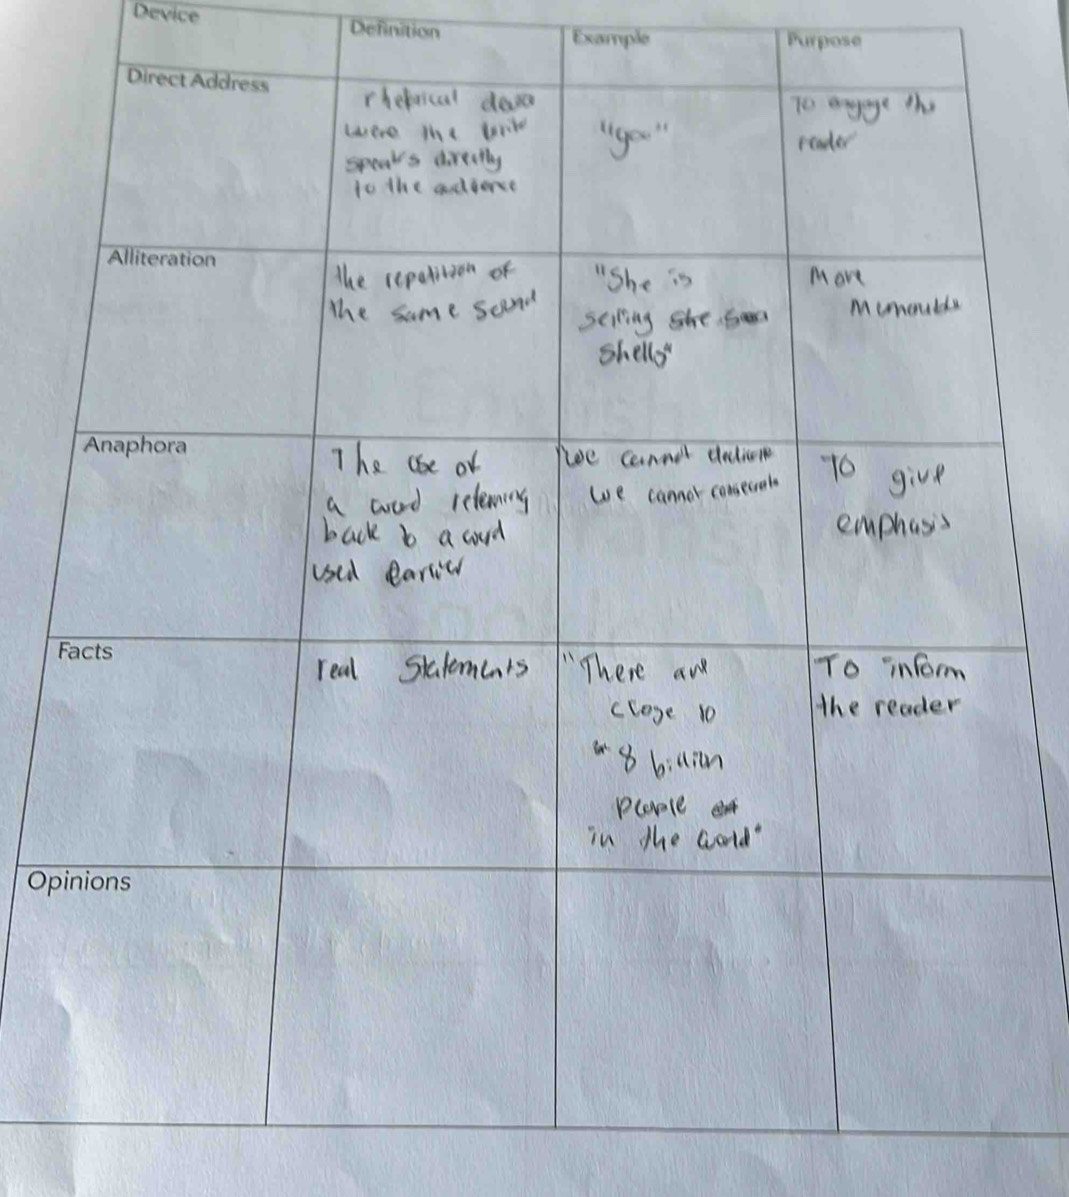 Device
Definition
Example
Purpose
Direct Address
rhetorical
were the
speaks directly
to the audience
"you"
To engage the
reader
Alliteration
the repetition of
the same sound
"She is
selling she
shells"
More
Anaphora
The use of
a word referring
back to a word
used earlier
"We cannot
we cannot consecrate
To give
emphasis
Facts
real Statements
"There are
close to
8 billion
people
in the world"
To inform
the reader
Opinions